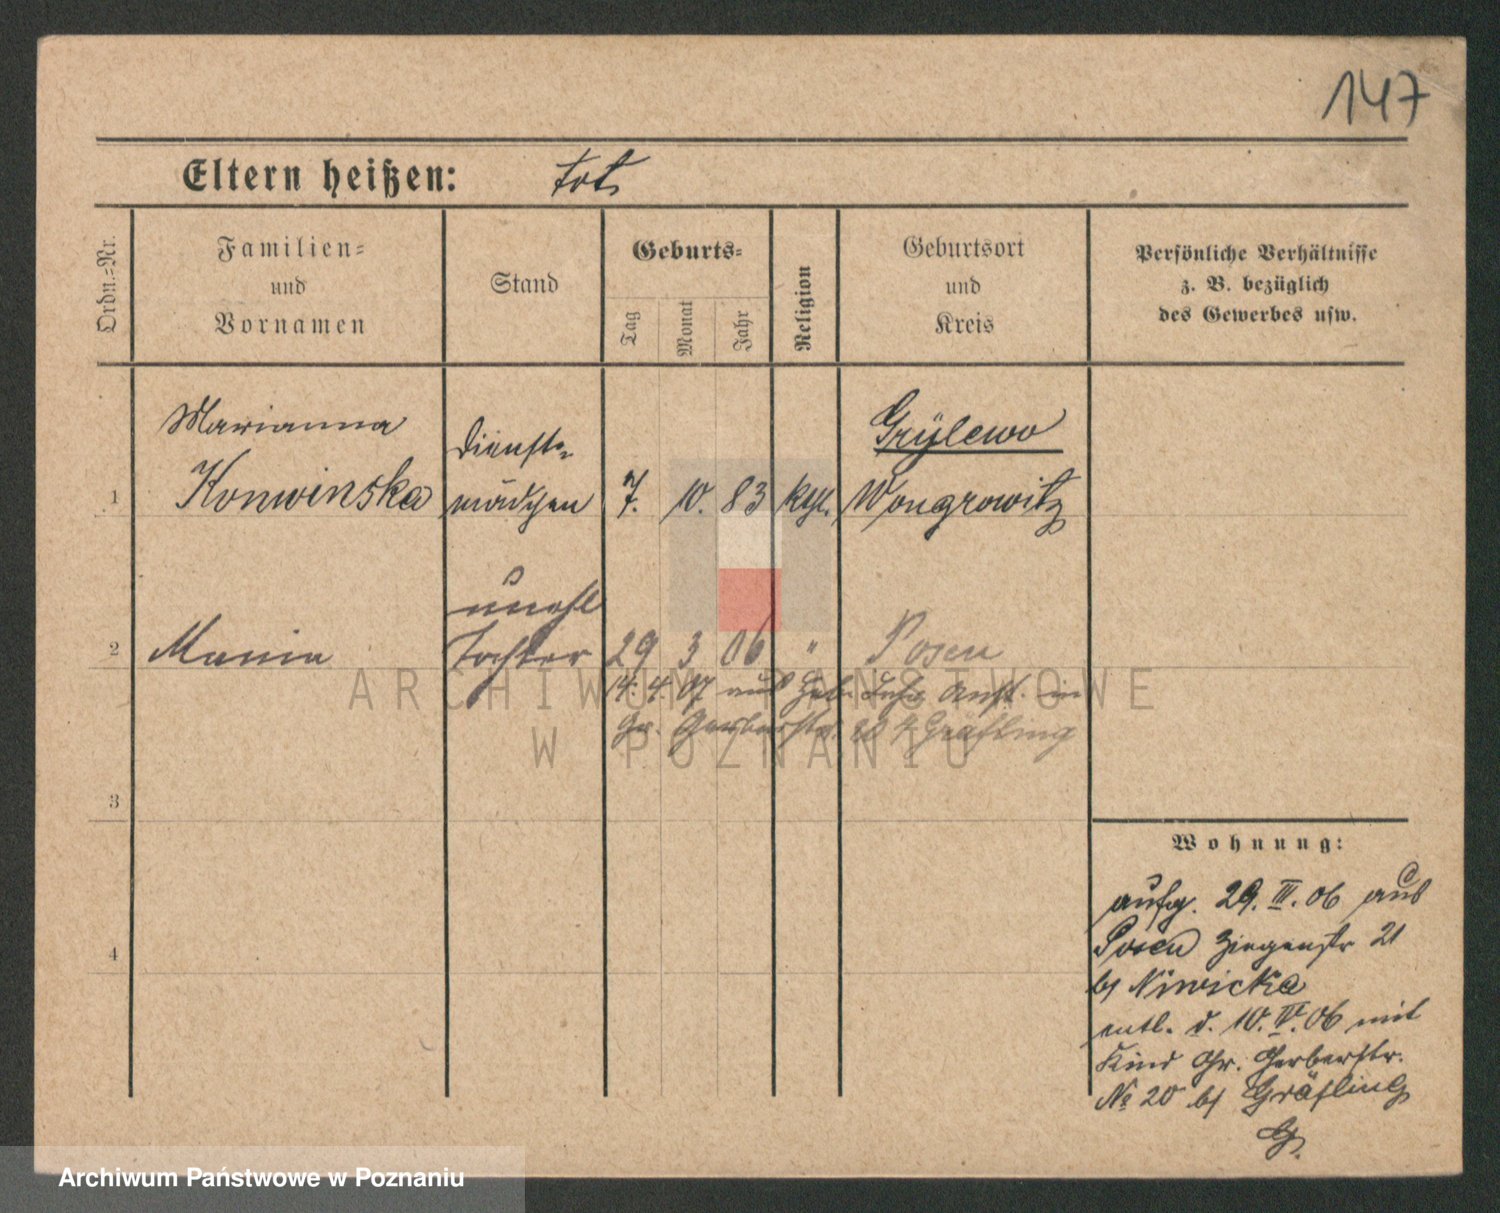 147
Eltern heißen: tot
Ordn.=Nr.
Familien=
und
Vornamen
Stand
Geburts=
Tag
Monat
Jahr
Religion
Geburtsort
und
Kreis
Persönliche Verhältnisse
z. B. bezüglich
des Gewerbes usw.
1
Marianna
Konwinska
Dienst=
mädchen
7. 10. 83
Kthl.
Grylewo
Wongrowitz
2
Maria
unehl
Tochter
29 3 06 " Posen
14. 4. 07 aus Heb. Lehr Anst. in
Gr. Gerberstr. 20 b Gräfling
3
4
Wohnung:
aufg. 29. III. 06 aus
Posen Ziegenstr 21
bj Niwicka
entl. d. 10. IV. 06 mit
Kind Gr. Gerberstr.
No 20 bj Gräfling
ARCHIWUM PAŃSTWOWE
W POZNANIU
Archiwum Państwowe w Poznaniu